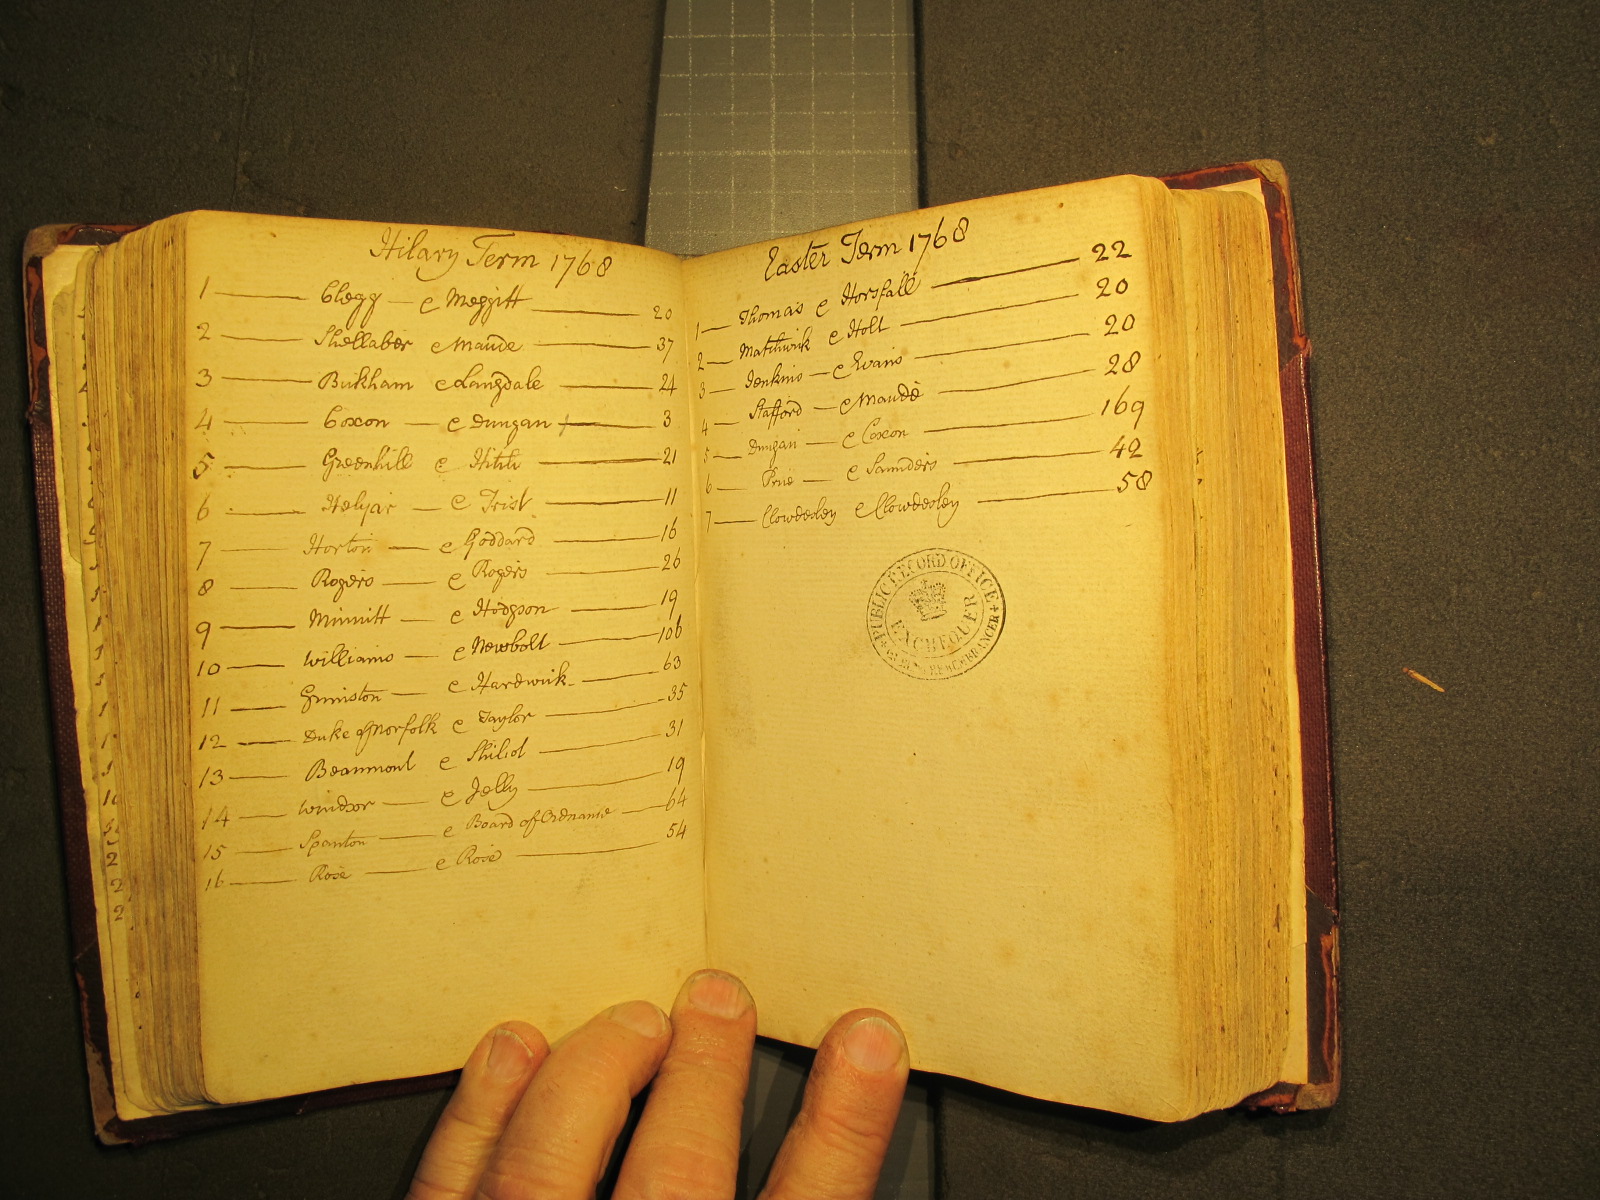 Hilary Term 1768
1 Clegg e Meggitt 20
2 Shellaber e Maude 37
3 Bukham e Langdale 24
4 Coxon e Dungan 3
5 Greenhill e Hitch 21
6 Helyar e Trist 11
7 Horton e Goddard 16
8 Rogers e Rogers 26
9 Minnitt e Hodgson 19
10 Williams e Newbolt 106
11 Gunistón e Hardwick 63
12 Duke of Norfolk e Taylor 35
13 Beaumont e 31
14 Windsor e Jelly 19
15 Spanton e Board of Ordnance 64
16 Rose e Rose 54
Easter Term 1768
1 Thomas e Horsfall 22
2 Matthwick e Holt 20
3 Jenkins e Evans 20
4 Stafford e Maude 28
5 Dungan e Coxon 169
6 e Saunders 42
7 Clowdesley e Clowdesley 58
PUBLIC RECORD OFFICE
EXCHEQUER
REMEMBRANCER
1
2
2
2